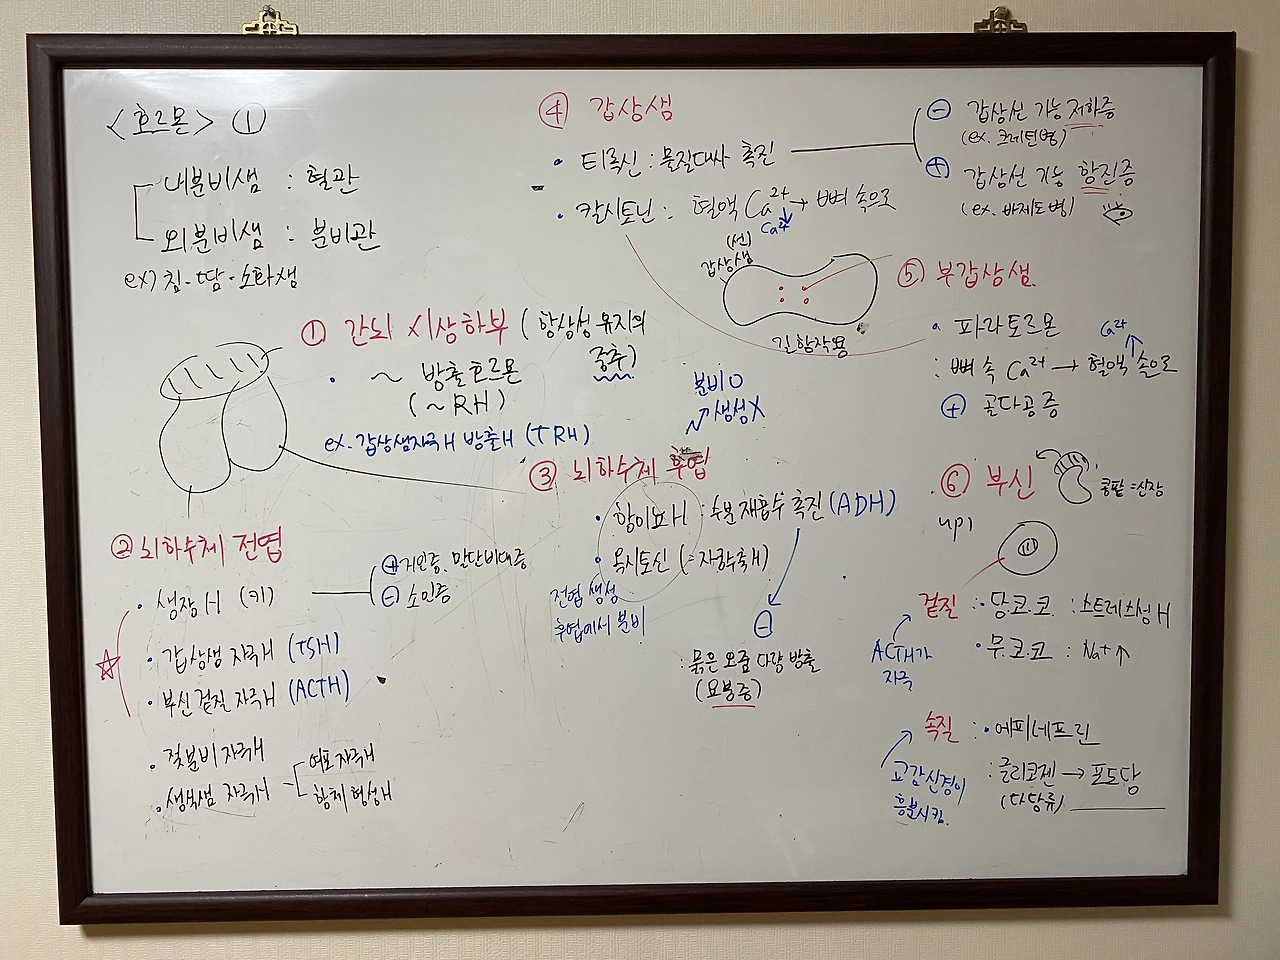 <호르몬> ①
내분비샘 : 혈관
외분비샘 : 분비관
ex) 침 - 땀 - 소화샘
① 간뇌 시상하부 (항상성 유지의
중추)
• ~ 방출호르몬
(~RH)
ex. 갑상샘자극H 방출H (TRH)
② 뇌하수체 전엽
• 생장H (키)
⊕ 거인증, 말단비대증
⊖ 소인증
☆
• 갑상샘 자극H (TSH)
• 부신겉질 자극H (ACTH)
• 젖분비 자극H
• 생식샘 자극H
여포 자극H
황체 형성H
분비O
생성X
③ 뇌하수체 후엽
• 항이뇨H : 수분 재흡수 촉진 (ADH)
• 옥시토신 (: 자궁수축H)
전엽 생성
후엽에서 분비
⊖
: 묽은 오줌 다량 방출
(요붕증)
④ 갑상샘
• 티록신 : 물질대사 촉진
⊖ 갑상선 기능 저하증
(ex. 크레틴병)
⊕ 갑상선 기능 항진증
(ex. 바제도병)
• 칼시토닌 : 혈액 Ca²⁺ → 뼈 속으로
Ca²⁺↓
(선)
갑상샘
길항작용
⑤ 부갑상샘
• 파라토르몬
Ca²⁺↑
: 뼈 속 Ca²⁺ → 혈액 속으로
⊕ 골다공증
⑥ 부신
콩팥 = 신장
겉질 : • 당.코.코 : 스트레스성H
• 무.코.코 : Na+↑
ACTH가
자극
속질 : • 에피네프린
: 글리코젠 → 포도당
(다당류)
교감신경이
흥분시킴.